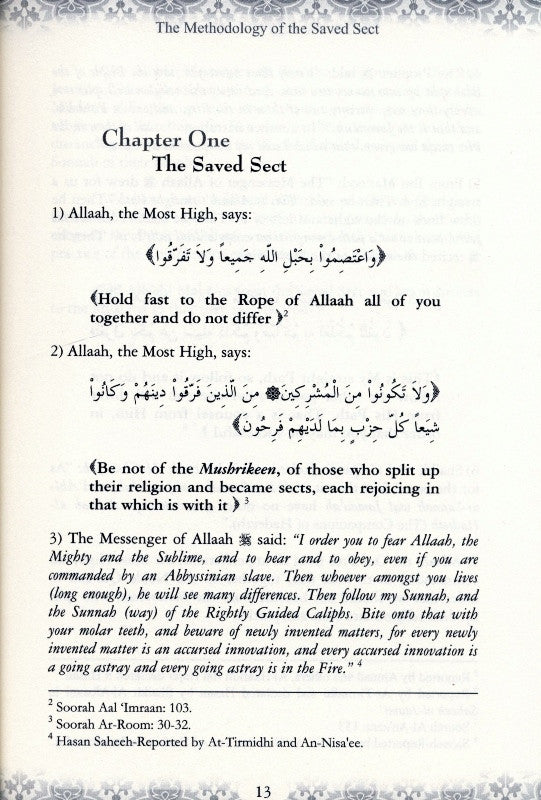 The Methodology of the Saved Sect
Chapter One
The Saved Sect
1) Allaah, the Most High, says:
﴿وَاعْتَصِمُواْ بِحَبْلِ اللّهِ جَمِيعاً وَلاَ تَفَرَّقُوا﴾
﴾Hold fast to the Rope of Allaah all of you
together and do not differ ﴿2
2) Allaah, the Most High, says:
﴿وَلاَ تَكُونُواْ مِنَ الْمُشْرِكِينَ۞ مِنَ الَّذِينَ فَرَّقُواْ دِينَهُمْ وَكَانُواْ
شِيَعاً كُلُّ حِزْبٍ بِمَا لَدَيْهِمْ فَرِحُونَ﴾
﴾Be not of the Mushrikeen, of those who split up
their religion and became sects, each rejoicing in
that which is with it ﴿ 3
3) The Messenger of Allaah ﷺ said: “I order you to fear Allaah, the
Mighty and the Sublime, and to hear and to obey, even if you are
commanded by an Abbyssinian slave. Then whoever amongst you lives
(long enough), he will see many differences. Then follow my Sunnah, and
the Sunnah (way) of the Rightly Guided Caliphs. Bite onto that with
your molar teeth, and beware of newly invented matters, for every newly
invented matter is an accursed innovation, and every accursed innovation is
a going astray and every going astray is in the Fire.” 4
2 Soorah Aal ‘Imraan: 103.
3 Soorah Ar-Room: 30-32.
4 Hasan Saheeh-Reported by At-Tirmidhi and An-Nisa'ee.
13